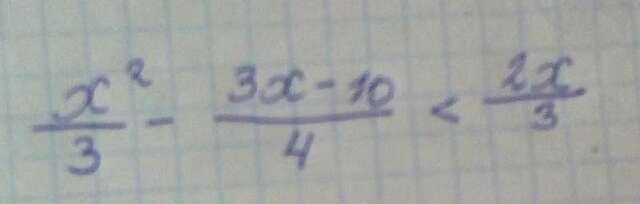 x²/3 - (3x-10)/4 < 2x/3